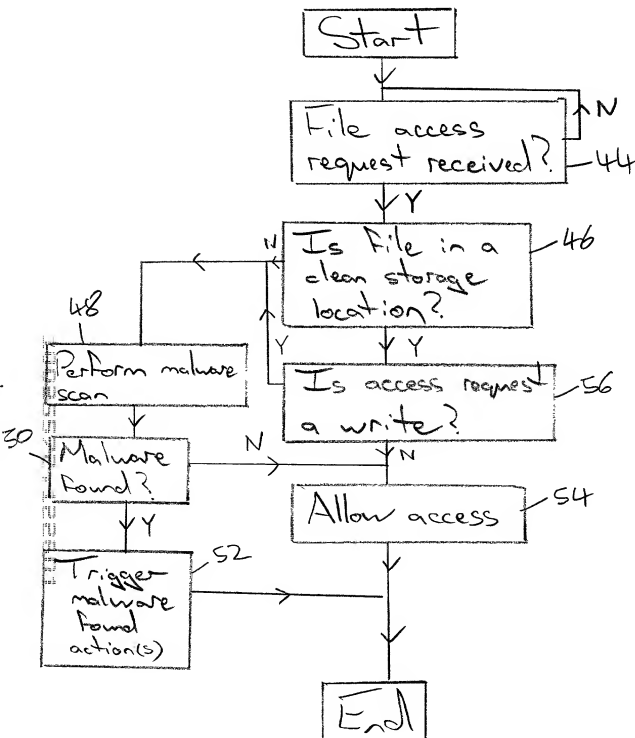 Start
N
File access
request received?
44
Y
Is File in a
clean storage
location?
46
N
48
Y
Y
Perform malware
scan
Is access request
a write?
56
50
Malware
Found?
N
N
Allow access
54
Y
52
Trigger
malware
Found
action(s)
End